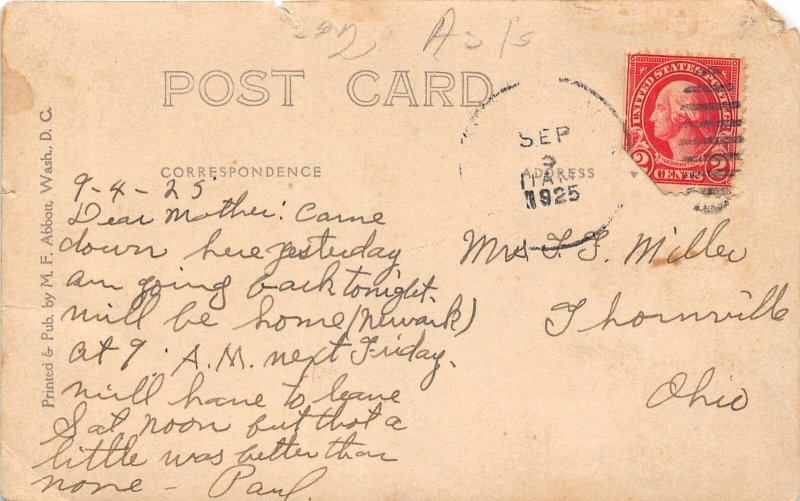 POST CARD
CORRESPONDENCE
ADDRESS
Printed & Pub. by M. F. Abbott, Wash., D. C.
UNITED STATES POSTAGE
WASHINGTON
2 CENTS 2
SEP
11 AM
1925
9-4-25
Dear Mother: Came
down here yesterday
am going back tonight.
will be home (Newark)
at 9. A.M. next Friday.
will have to leave
Sat noon but that a
little was better than
none - Paul
Mrs Miller
Thornville
Ohio